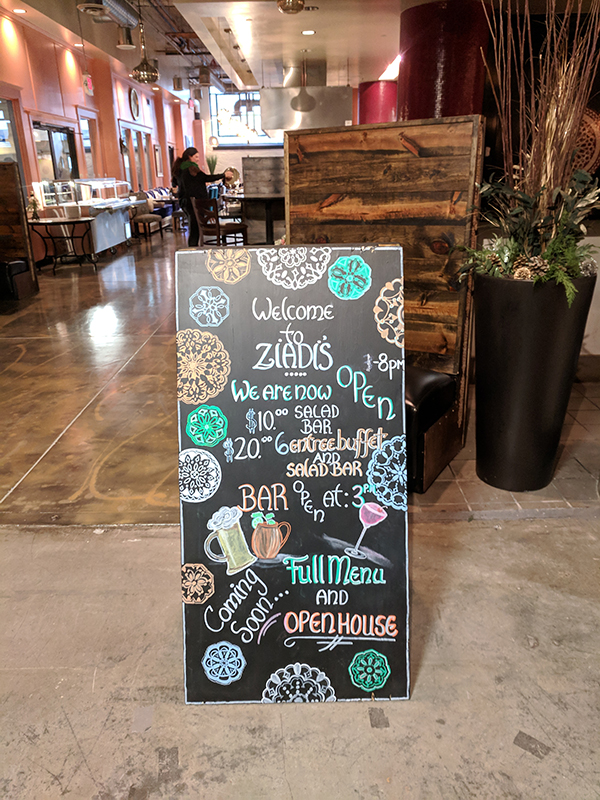 Welcome
to
ZIADI'S
-8pm
We are now OPEN
$10.00 SALAD
BAR
$20.00 6 entree buffet
AND
SALAD BAR
BAR OPEN AT: 3PM
Coming
Soon...
Full Menu
AND
OPEN HOUSE